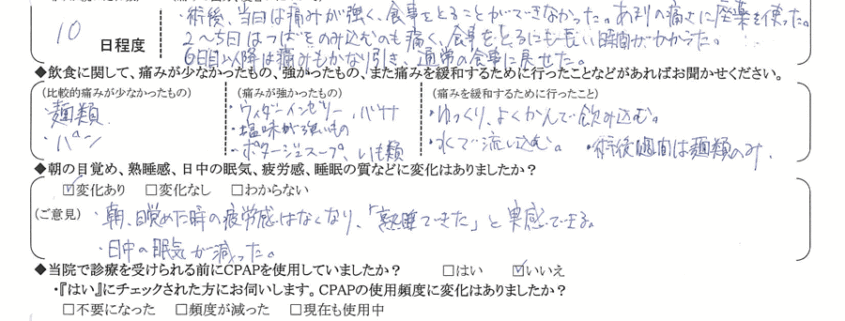 ・術後、当日は痛みが強く、食事をとることができなかった。あまりの痛さに座薬を使った。
10 日程度 2〜5日はつばをのみ込むのも痛く、食事をとるにも長い時間がかかった。
6日目以降は痛みもかなり引き、通常の食事に戻せた。
◆飲食に関して、痛みが少なかったもの、強かったもの、また痛みを緩和するために行ったことなどがあればお聞かせください。
(比較的痛みが少なかったもの) (痛みが強かったもの) (痛みを緩和するために行ったこと)
・麺類 ・ウィダーインゼリー、バナナ ・ゆっくり、よくかんで飲み込む。
・パン ・塩味が強いもの ・水で流し込む。 ・術後1週間は麺類のみ.
・ポタージュスープ、いも類
◆朝の目覚め、熟睡感、日中の眠気、疲労感、睡眠の質などに変化はありましたか?
☑変化あり □変化なし □わからない
(ご意見) ・朝、目覚めた時の疲労感はなくなり、「熟睡できた」と実感できる。
・日中の眠気が減った。
◆当院で診療を受けられる前にCPAPを使用していましたか? □はい ☑いいえ
・『はい』にチェックされた方にお伺いします。CPAPの使用頻度に変化はありましたか?
□不要になった □頻度が減った □現在も使用中